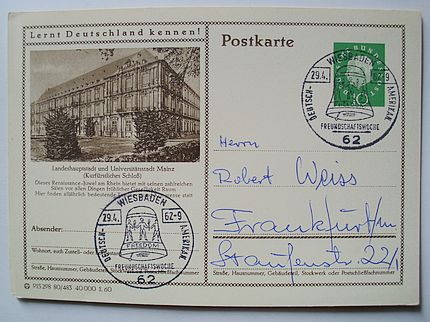 Lernt Deutschland kennen!
Postkarte
Landeshauptstadt und Universitätsstadt Mainz
(Kurfürstliches Schloß)
Dieses Renaissance-Juwel am Rhein bietet mit seinen zahlreichen
Sälen vor allen Dingen fröhlicher Geselligkeit Raum
Hier finden alljährlich bedeutende statt
Absender:
WIESBADEN
29.4. 62-9
DEUTSCH-
AMERIKAN.
FREEDOM
FREUNDSCHAFTSWOCHE
62
Wohnort, auch Zustell- oder
Straße, Hausnummer, Gebäudeteil,
P 15 278 80/483 40 000 1. 60
WIESBADEN
29.4. 62-9
DEUTSCH-
AMERIKAN.
FREUNDSCHAFTSWOCHE
62
10
Herrn
Robert Weiss
Frankfurt/m
Staufenstr. 22/I
Straße, Hausnummer, Gebäudeteil, Stockwerk oder Postschließfachnummer